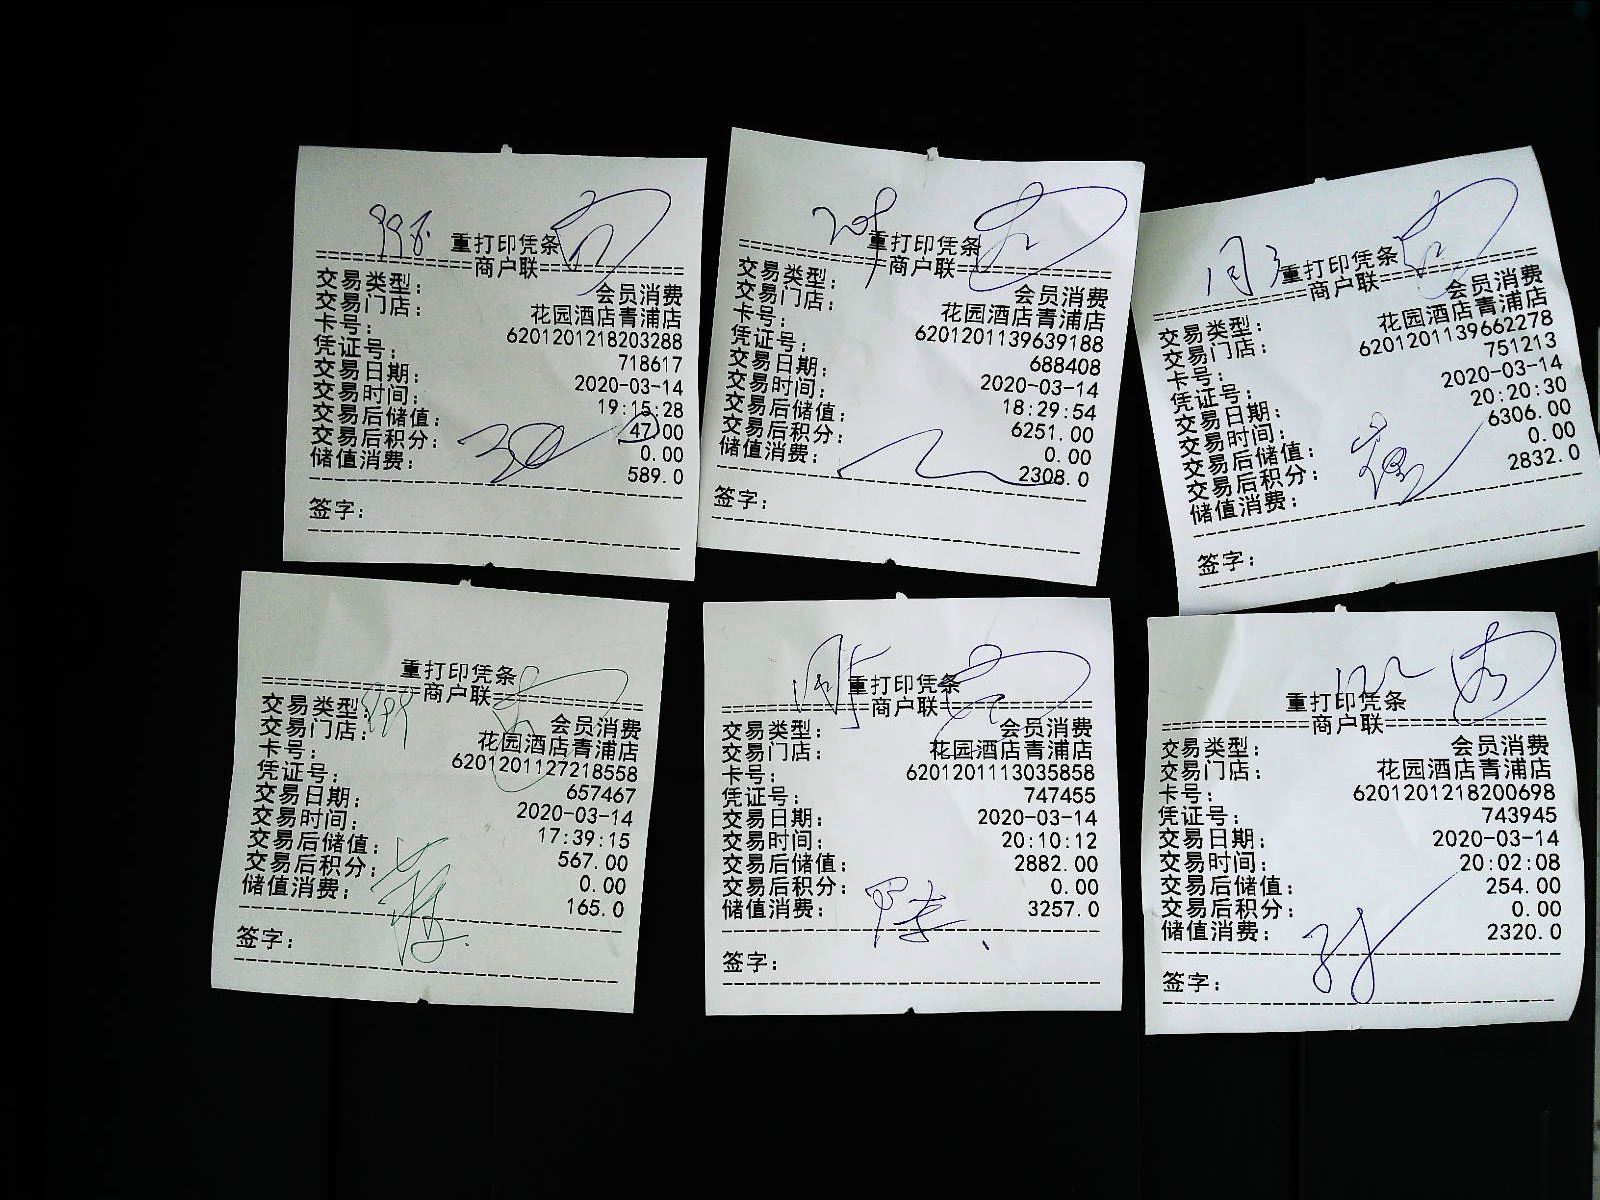 重打印凭条
==========商户联==========
交易类型： 会员消费
交易门店： 花园酒店青浦店
卡号： 6201201218203288
凭证号： 718617
交易日期： 2020-03-14
交易时间： 19:15:28
交易后储值： 47.00
交易后积分： 0.00
储值消费： 589.0
签字：
重打印凭条
==========商户联==========
交易类型： 会员消费
交易门店： 花园酒店青浦店
卡号： 6201201139639188
凭证号： 688408
交易日期： 2020-03-14
交易时间： 18:29:54
交易后储值： 6251.00
交易后积分： 0.00
储值消费： 2308.0
签字：
重打印凭条
==========商户联==========
交易类型： 会员消费
交易门店： 花园酒店青浦店
卡号： 6201201139662278
凭证号： 751213
交易日期： 2020-03-14
交易时间： 20:20:30
交易后储值： 6306.00
交易后积分： 0.00
储值消费： 2832.0
签字：
重打印凭条
==========商户联==========
交易类型： 会员消费
交易门店： 花园酒店青浦店
卡号： 6201201127218558
凭证号： 657467
交易日期： 2020-03-14
交易时间： 17:39:15
交易后储值： 567.00
交易后积分： 0.00
储值消费： 165.0
签字：
重打印凭条
==========商户联==========
交易类型： 会员消费
交易门店： 花园酒店青浦店
卡号： 6201201113035858
凭证号： 747455
交易日期： 2020-03-14
交易时间： 20:10:12
交易后储值： 2882.00
交易后积分： 0.00
储值消费： 3257.0
签字：
重打印凭条
==========商户联==========
交易类型： 会员消费
交易门店： 花园酒店青浦店
卡号： 6201201218200698
凭证号： 743945
交易日期： 2020-03-14
交易时间： 20:02:08
交易后储值： 254.00
交易后积分： 0.00
储值消费： 2320.0
签字：